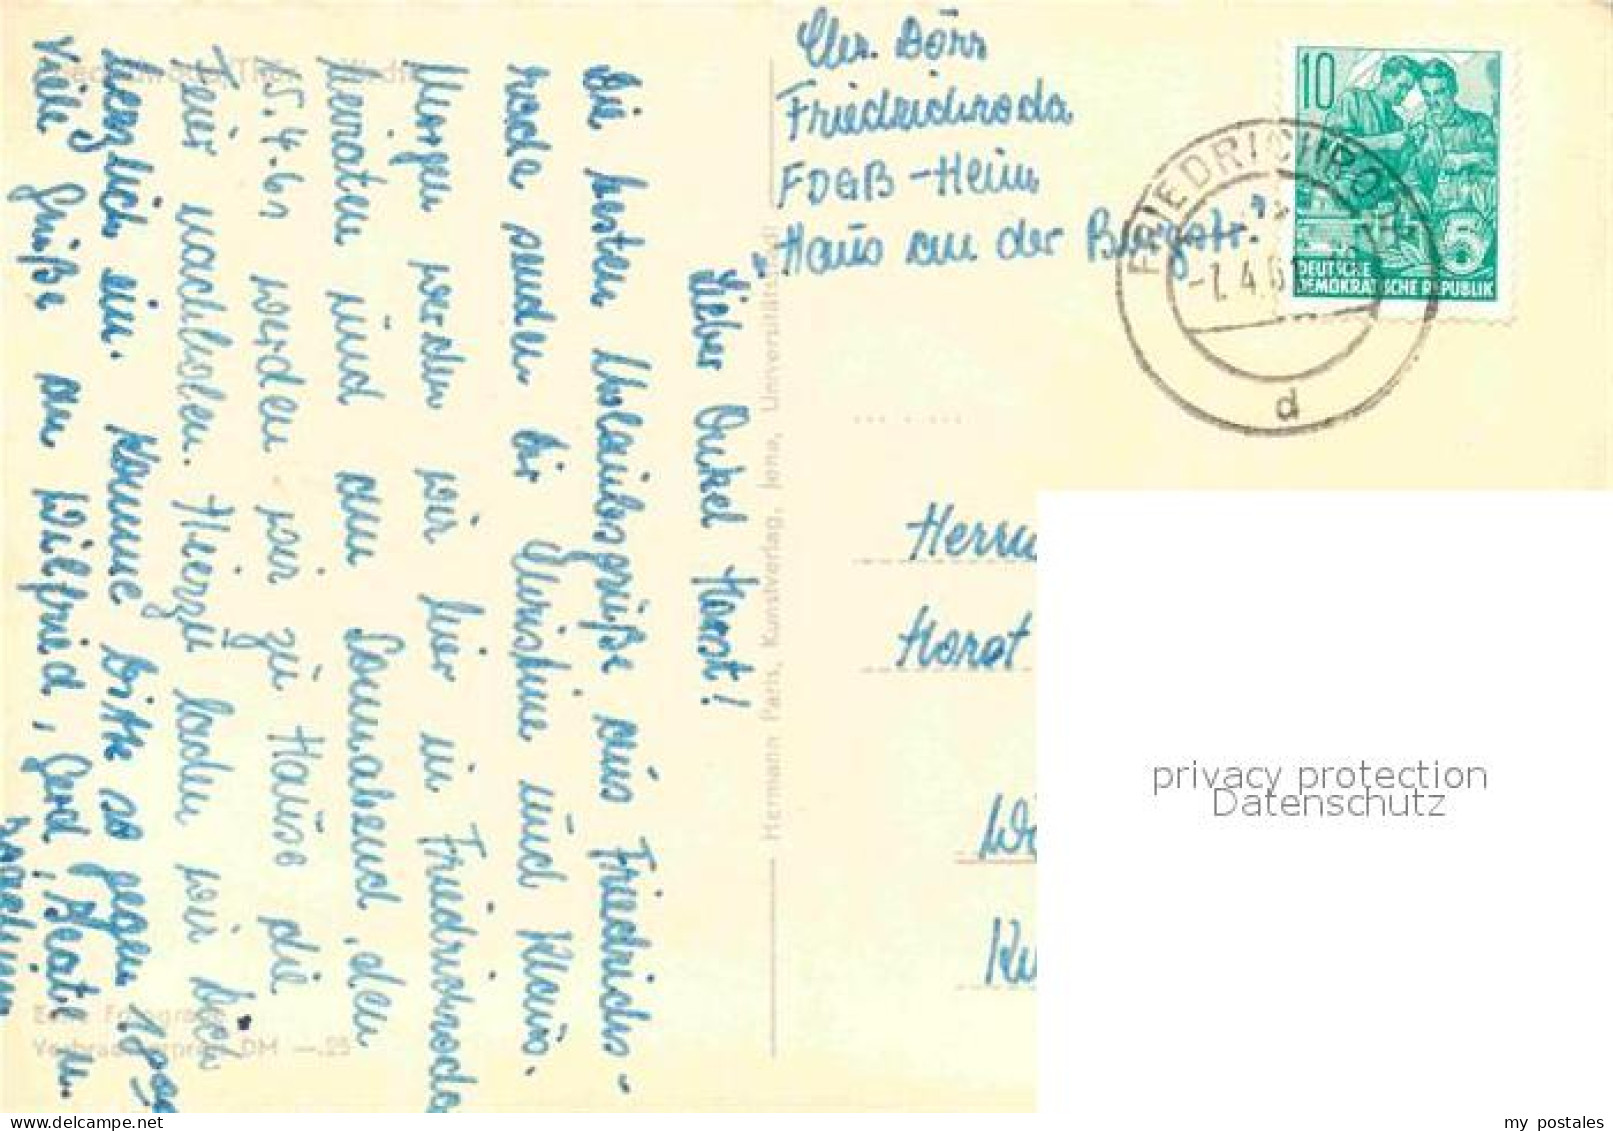 Chr. Dörr
Friedrichroda
FDGB-Heim
"Haus an der Burgstr."
10
DEUTSCHE
DEMOKRATISCHE REPUBLIK
5
FRIEDRICHRODA
-7.4.61
d
Herrn
Horst
privacy protection
Datenschutz
Lieber Onkel Horst!
Die besten Urlaubsgrüße aus Friedrich-
roda senden Dir Christine und Klaus.
Morgen werden wir hier in Friedrichroda
heiraten und am Sonnabend, den
15.4.61 werden wir zu Hause die
Feier nachholen. Hierzu laden wir Dich
herzlich ein. Komme bitte so gegen
Viele Grüße an Wilfried, Gerd, Beate u.
Hermann Paris, Kunstverlag, Jena, Universitätsstadt
Echte Fotografie
Verbraucherpreis DM —.25
my postales